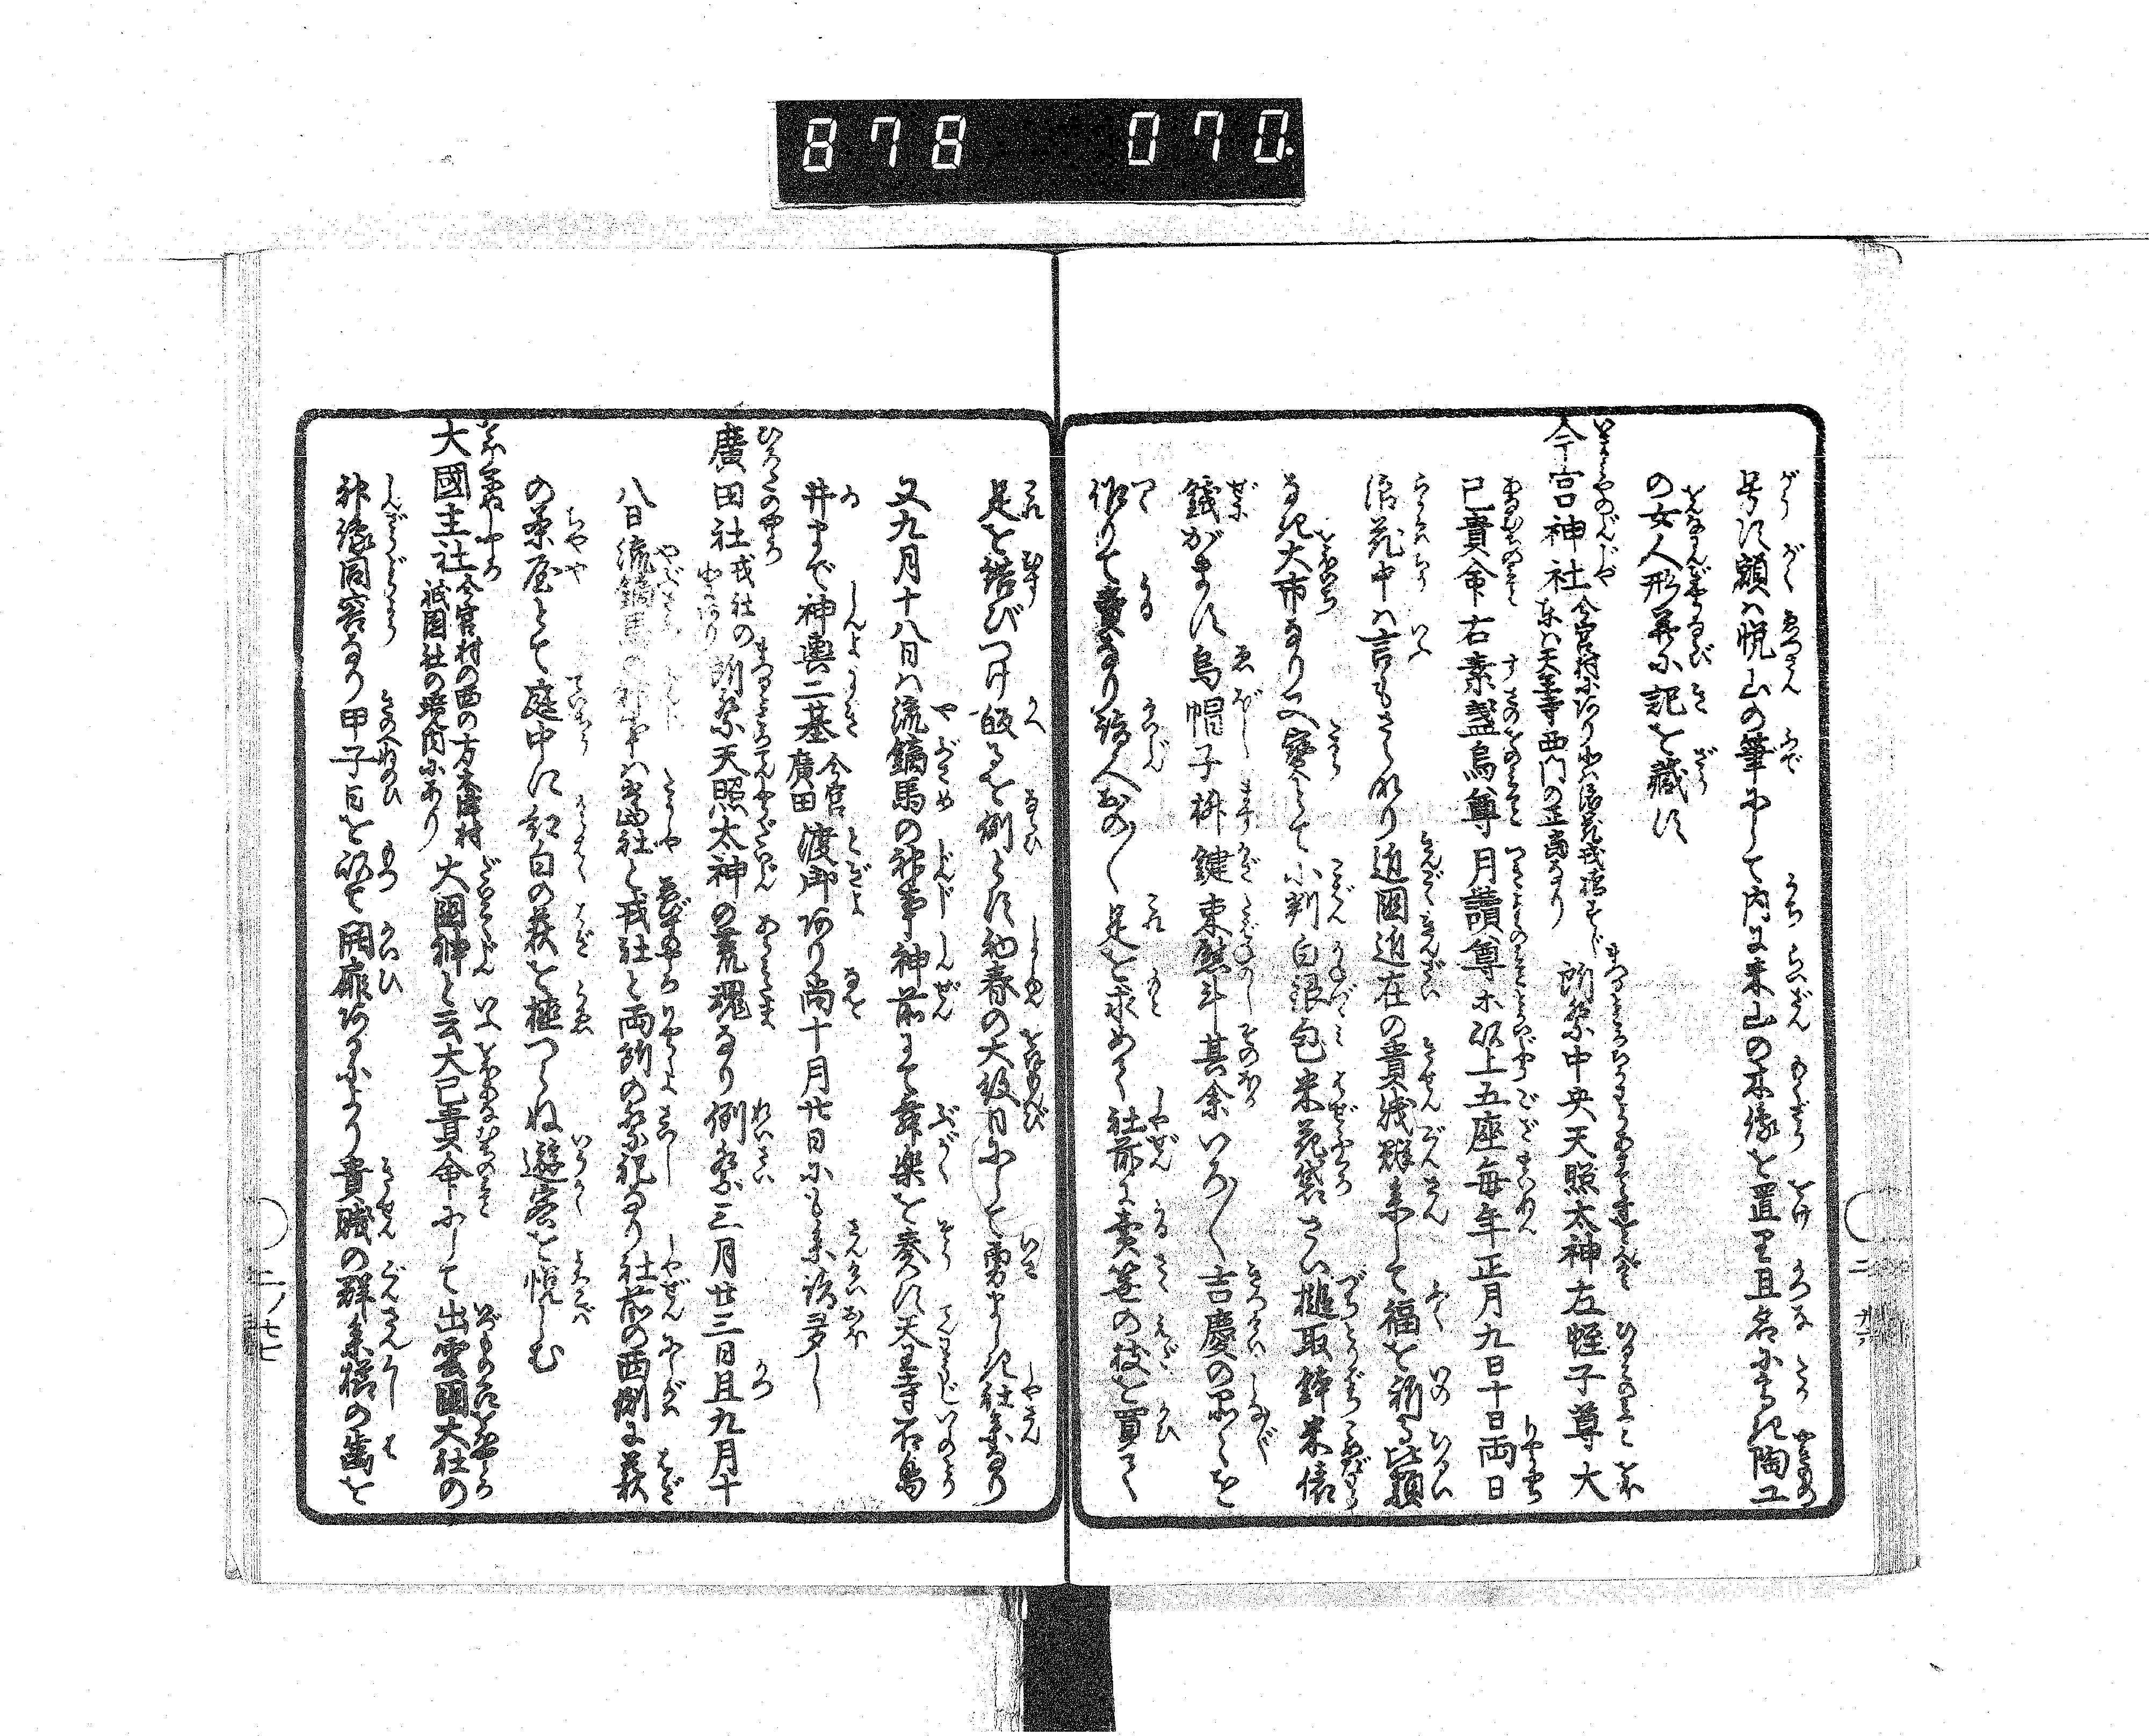 878 070.
号す額ハ悦山の筆にして内に来山の木像を置里且名に高き陶工
の女人形并に記を蔵す
今宮神社 今宮村にあり北ハ浪花戎橋すじ 東ハ天王寺西門の正面なり 所祭中央天照太神左蛭子尊大
已貴命右素盞烏尊月讀尊木以上五座毎年正月九日十日両日
浪花中ハ言もさらなり近国近在の貴賤群参して福を祈る此賴
なき大市なり又宝とて小判白銀包米花袋さい槌取鉢米俵
錢がます烏帽子桝鍵束熨斗其余いろ〳〵吉慶の品々を
作りて賣なり諸人おの〳〵是を求めて社前に売筐の枝を買て
是を結びつけ皈るを例とす初春の大紋日にして勇ましき社参なり
又九月十八日ハ流鏑馬の神事神前にて舞楽を奏す天王寺石鳥
井まで神輿二基 今宮 廣田 渡御あり尚十月廿日にも参詣多し
廣田社 戎社の 北にあり 所祭天照太神の荒魂なり例祭三月廿三日且九月十
八日流鏑馬の神事ハ当社と戎社と両所の祭祀なり社前の西側に萩
の茶屋とて庭中に紅白の萩を植つらね遊客を悦しむ
大國主社 今宮村の西の方木津村 祇園社の境内にあり 大國神と云大已貴命にして出雲國大社の
神像同容なり甲子日を以て開扉あるにより貴賤の群参櫛の歯を
二ノ 七七